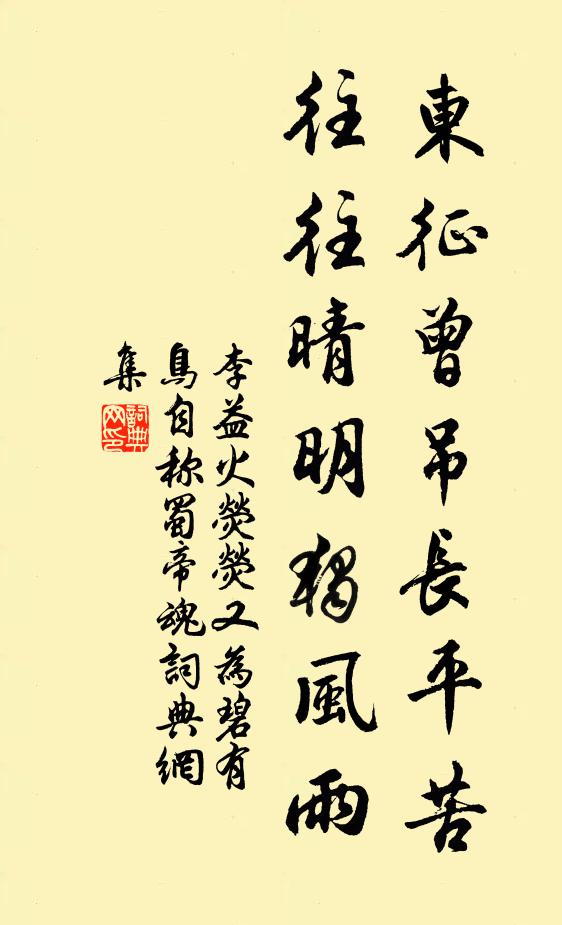 東征曾吊長平苦
往往晴明獨風雨
李益火熒熒又為碧有
鳥自称蜀帝魂詞典網
集
詞典
网印